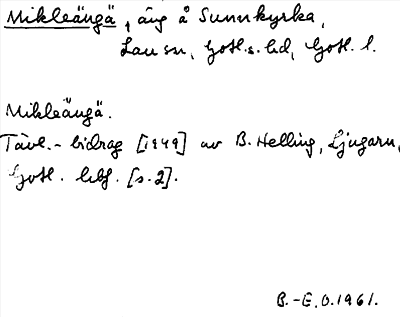 Mikleängä, äng å Sunnkyrka,
Lau sn, Gotl.s. hd, Gotl. l.
Mikleängä.
Tävl.-bidrag [1949] av B. Helling, Ljugarn,
Gotl. hbf. [s.2].
B.-E.O.1961.